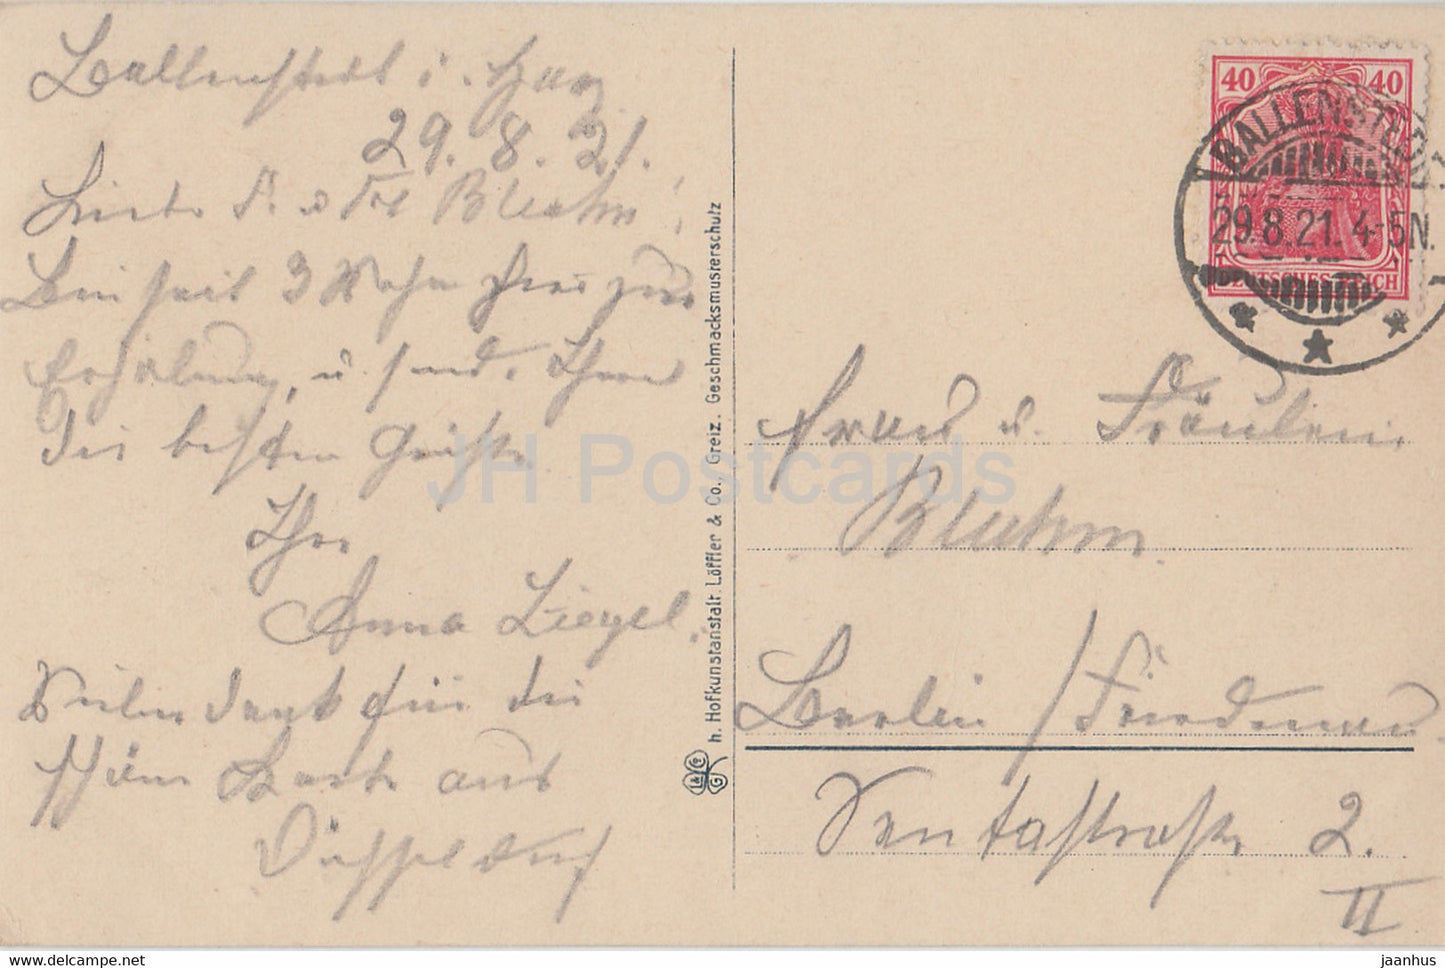 Ballenstedt i. Harz
29. 8. 21.
Liebe Fr. u. Frl Bluhm!
Bin seit 3 Wochen hier zur
Erholung, u. send. Ihnen
die besten Grüße.
Ihre
Anna Ziegel.
Vielen Dank für die
schöne Karte aus
Düsseldorf
h. Hofkunstanstalt Löffler & Co., Greiz. Geschmacksmusterschutz
L&C
G
40 40
DEUTSCHES REICH
BALLENSTEDT
29.8.21. 4-5N.
Frau u. Fräulein
Bluhm
Berlin / Friedenau
Sentastraße 2.
II
JH Postcards
www.delcampe.net
jaanhus